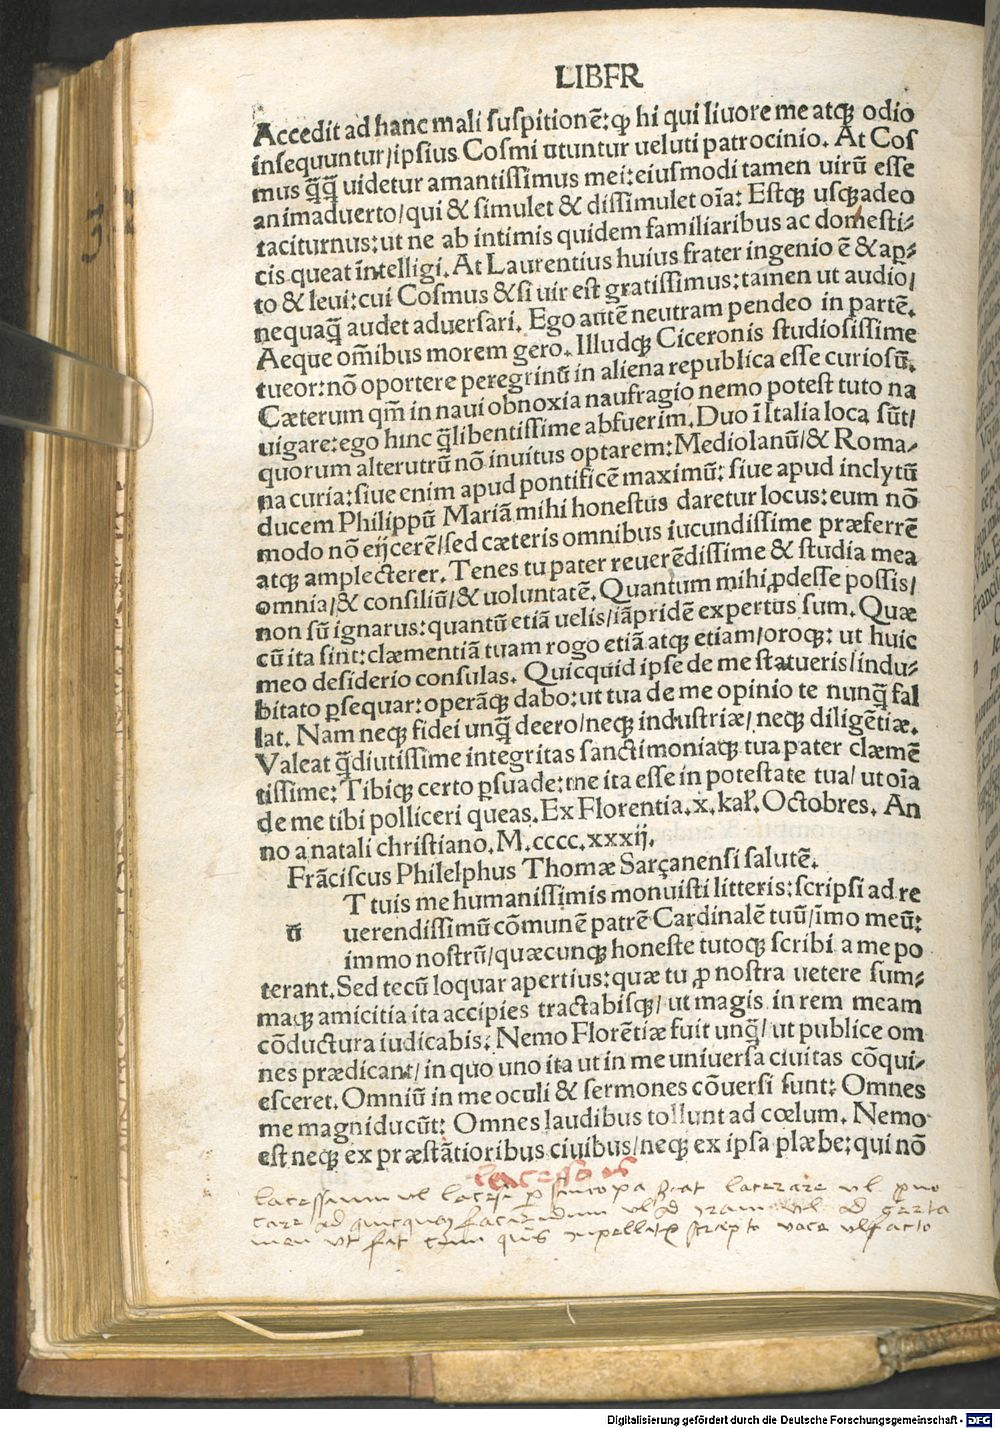 LIBER
Accedit ad hanc mali suspitionē: ꝙ hi qui liuore me atqꝫ odio
insequuntur/ipsius Cosmi utuntur ueluti patrocinio. At Cos
mus q̄q̄ uidetur amantissimus mei: eiusmodi tamen uirū esse
animaduerto/qui & simulet & dissimulet oīa: Estqꝫ usqꝫadeo
taciturnus: ut ne ab intimis quidem familiaribus ac domesti⸗
cis queat īntelligi. At Laurentius huius frater ingenio ē & aꝑ⸗
to & leui: cui Cosmus & si uir est gratissimus: tamen ut audio/
nequaq̄ audet aduersari. Ego autē neutram pendeo in partē.
Aeque om̄ibus morem gero. Illudqꝫ Ciceronis studiosissime
tueor: nō oportere peregrinū in aliena republica esse curiosū.
Cæterum qm̄ in naui obnoxia naufragio nemo potest tuto na
uigare: ego hinc q̄libentissime abfuerim. Duo ī Italia loca sūt/
quorum alterutrū nō inuitus optarem: Mediolanū/& Roma⸗
na curia: siue enim apud pontificē maximū: siue apud inclytū
ducem Philippū Mariā mihi honestus daretur locus: eum nō
modo nō eijcerē/sed cæteris omnibus iucundissime præferrē
atqꝫ amplecterer. Tenes tu pater reuerēdissime & studia mea
omnia/& consiliū/& uoluntatē. Quantum mihi ꝓdesse possis/
non sū ignarus: quantū etiā uelis/iāpridē expertus sum. Quæ
cū ita sint: clæmentiā tuam rogo etiā atqꝫ etiam/oroqꝫ: ut huic
meo desiderio consulas. Quicquid ipse de me statueris/indu⸗
bitato ꝑsequar: operāqꝫ dabo: ut tua de me opinio te nunq̄ fal
lat. Nam neqꝫ fidei unq̄ deero/neqꝫ industriæ/neqꝫ diligētiæ.
Valeat q̄diutissime integritas sanctimoniaqꝫ tua pater clæmē
tissime: Tibiqꝫ certo ꝑsuade: me ita esse in potestate tua/ut oīa
de me tibi polliceri queas. Ex Florentia. x. kał. Octobres. An
no a natali christiano. M. cccc. xxxij.
Frāciscus Philelphus Thomæ Sarçanensi salutē.
T tuis me humanissimis monuisti litteris: scripsi ad re
ū uerendissimū cōmunē patrē Cardinalē tuū/īmo meū:
immo nostrū/quæcunqꝫ honeste tutoqꝫ scribi a me po
terant. Sed tecū loquar apertius: quæ tu ꝓ nostra uetere sum⸗
maqꝫ amicitia ita accipies tractabisqꝫ/ut magis in rem meam
cōductura iudicabis. Nemo Florētiæ fuit unq̄/ut publice om
nes prædicant/in quo uno ita ut in me uniuersa ciuitas cōqui⸗
esceret. Omniū in me oculi & sermones cōuersi sunt: Omnes
me magniducūt: Omnes laudibus tollunt ad cœlum. Nemo
est neqꝫ ex præstātioribus ciuibus/neqꝫ ex ipsa plæbe: qui nō
lacesso is
ut fit cum quis scripto voce vl facto
Digitalisierung gefördert durch die Deutsche Forschungsgemeinschaft - DFG